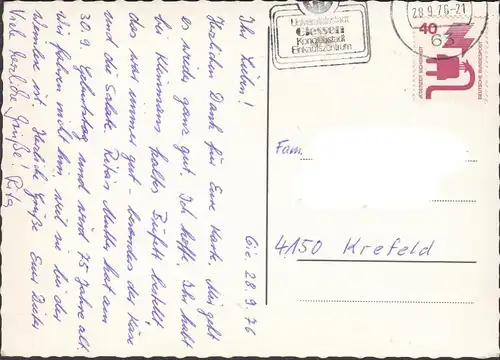 Gie. 28.9.76
Ihr Lieben!
Herzlichen Dank für Eure Karte. Mir geht
es wieder ganz gut. Ich hoffe, Ihr habt
bei Kleinmanns kaltes Büfett bestellt
das ist immer gut - besonders der Käse
und die Salate. Ritas Mutter hat am
30.9. Geburtstag und wird 75 Jahre alt.
Wir fahren nicht hin, weil sie bei der
ist. Herzliche Grüße Euer Dieter
Viele herzliche Grüße! Rita
Universitätsstadt
Giessen
Kongreßstadt
Einkaufszentrum
28.9.76-21
63
40
DEUTSCHE BUNDESPOST
Fam.
4150 Krefeld